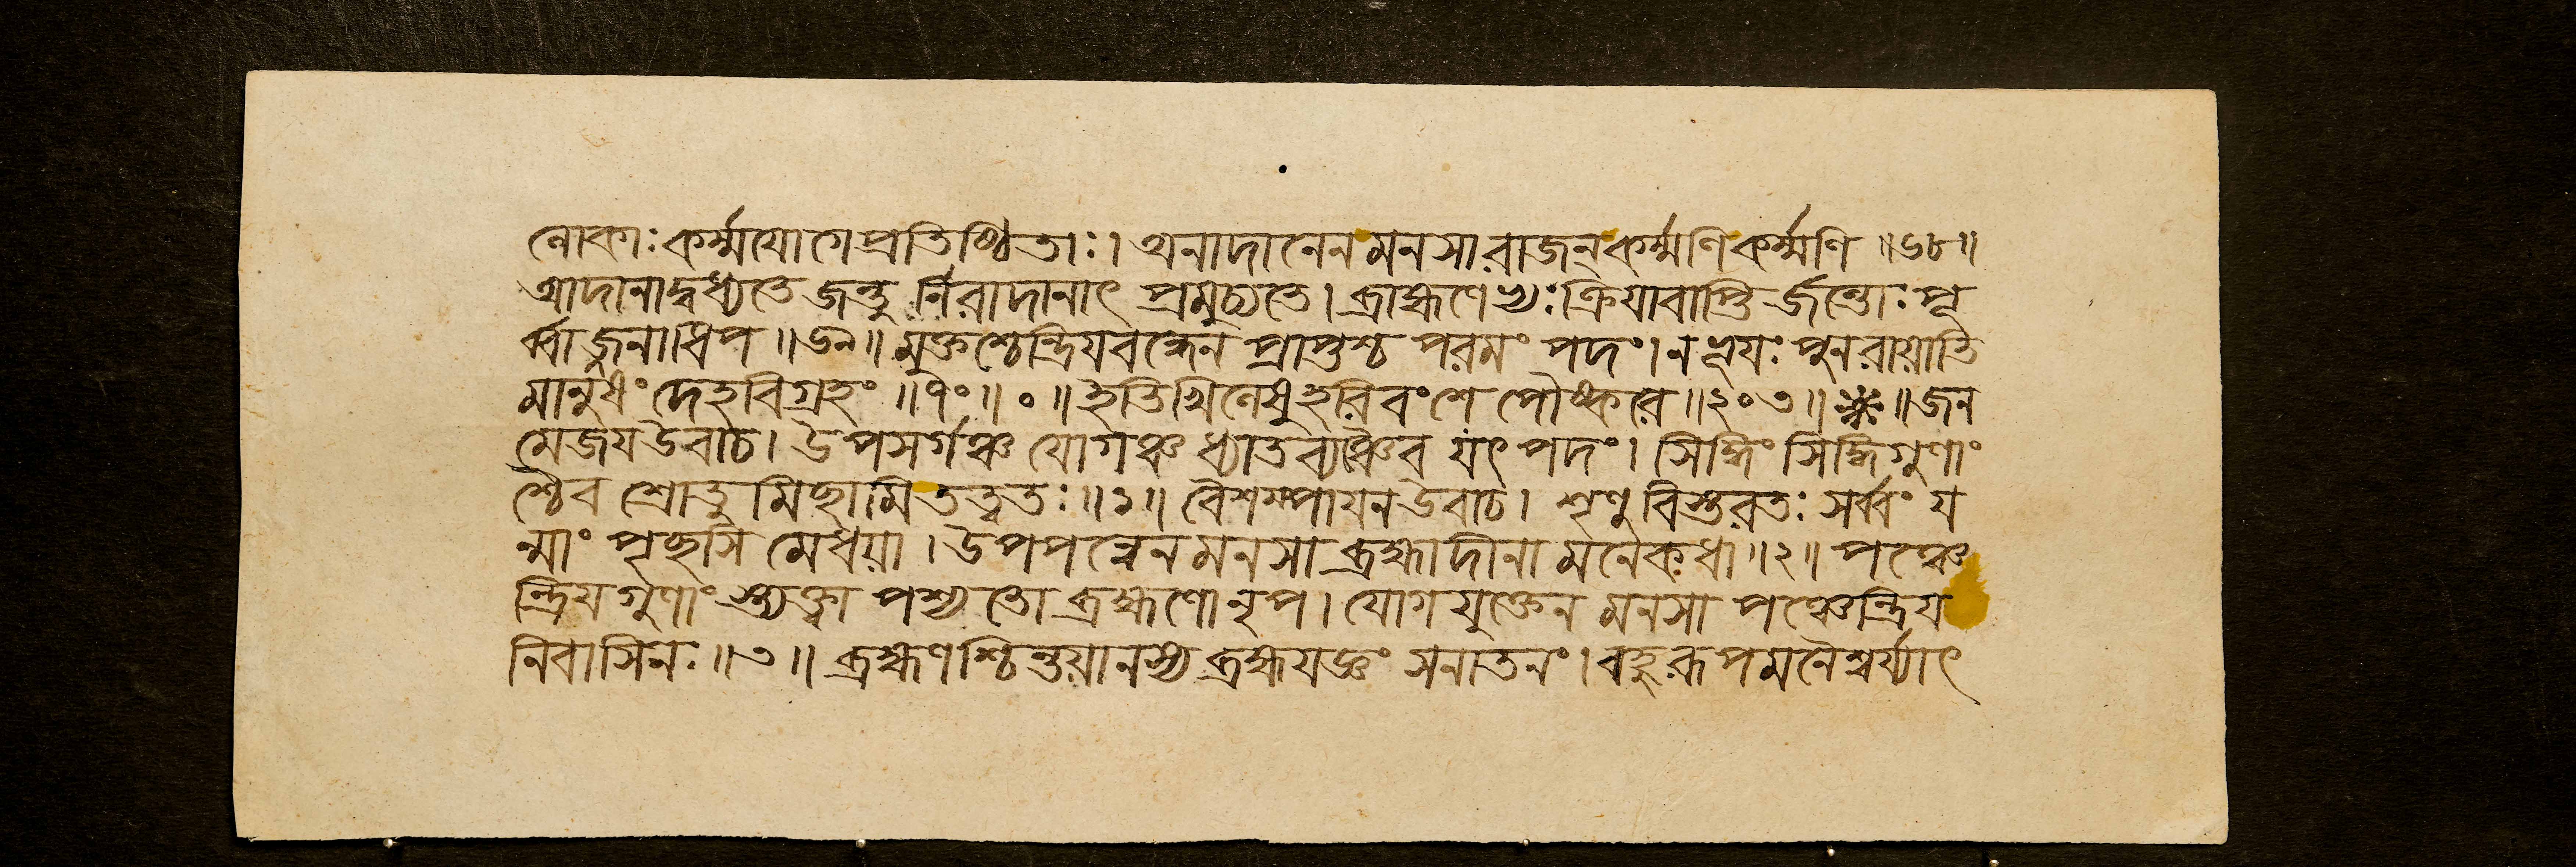 ল্লোকাঃ কর্ম্মযোগে প্রতিষ্ঠিতাঃ। অনাদানেন মনসা রাজন্ কর্ম্মণি কর্ম্মণি ॥৬৮॥
আদানাদ্বধ্যতে জন্তু র্নিরাদানাৎ প্রমুচ্যতে। ব্রাহ্মণেভ্যঃ ক্রিয়াবাপ্তি র্জন্তোঃ পূ
র্ব্বা জনাধিপ ॥৬৯॥ মুক্তশ্চেন্দ্রিয়বন্ধেন প্রাপ্তশ্চ পরমং পদং। ন ভূয়ঃ পুনরায়াতি
মানুষং দেহবিগ্রহং ॥৭০॥ ০ ॥ ইতি খিলেষু হরিবংশে পৌষ্করে ॥২০৩॥ ❈ ॥ জন
মেজয় উবাচ। উপসর্গঞ্চ যোগঞ্চ ধ্যাতব্যঞ্চৈব যৎ পদং। সিদ্ধিং সিদ্ধিগুণাং
শ্চৈব শ্রোতু মিচ্ছামি তত্ত্বতঃ ॥১॥ বৈশম্পায়ন উবাচ। শৃণু বিস্তরতঃ সর্ব্বং য
ন্মাং পৃচ্ছসি মেধয়া। উপপন্নেন মনসা ব্রহ্মাদীনা মনেকধা ॥২॥ পঞ্চে
ন্দ্রিয়গুণাং স্ত্যক্ত্বা পশ্যতো ব্রহ্মণো নৃপ। যোগযুক্তেন মনসা পঞ্চেন্দ্রিয়
নিবাসিনঃ ॥৩॥ ব্রহ্মণ শ্চিন্তয়ানস্য ব্রহ্মযজ্ঞং সনাতনং। বহুরূপমনৈশ্বর্য্যাৎ